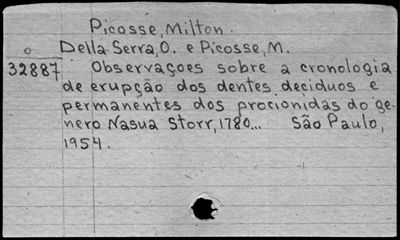 Picosse, Milton.
Della Serra, O. e Picosse, M.
32887 Observaçoes sobre a cronologia
de erupção dos dentes deciduos e
permanentes dos procionidas do ge-
nero Nasua Storr, 1780... São Paulo,
1954.